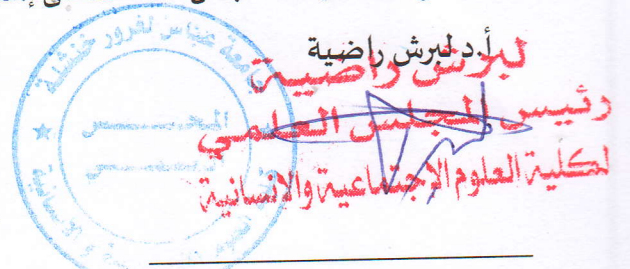 أ.د لبرش راضية
لبرش راضية
رئيس المجلس العلمي
لكلية العلوم الإجتماعية والانسانية
جامعة عباس لغرور خنشلة
المجلس
العلمي